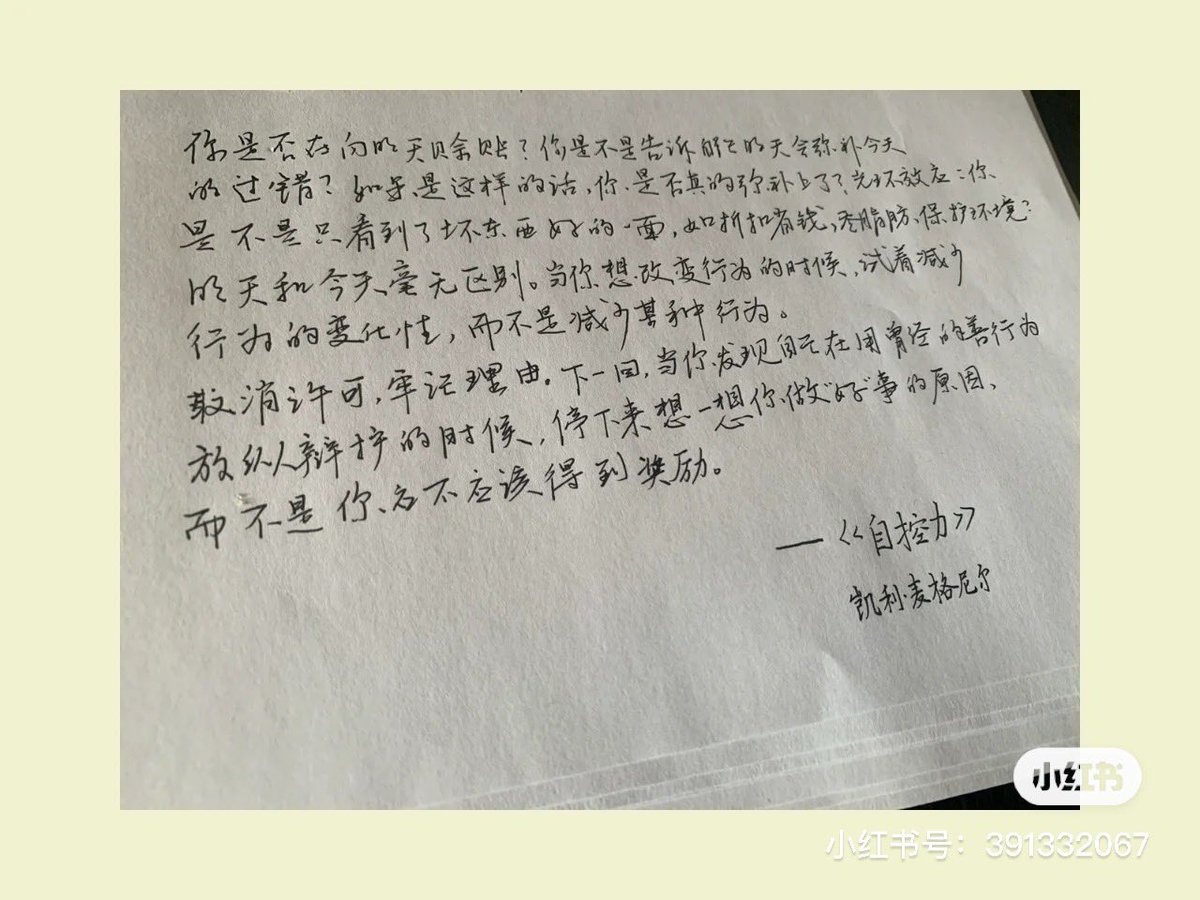 你是否在向明天赊账？你是不是告诉自己明天会弥补今天
的过错？如果是这样的话，你是否真的弥补上了？光环效应：你
是不是只看到了坏东西好的一面，如折扣省钱，零脂肪、保护环境？
明天和今天毫无区别。当你想改变行为的时候，试着减少
行为的变化性，而不是减少某种行为。
取消许可，牢记理由。下一回，当你发现自己在用曾经的善行为
放纵辩护的时候，停下来想一想你做“好”事的原因、
而不是你应不应该得到奖励。
—《自控力》
凯利·麦格尼尔
小红书
小红书号：391332067